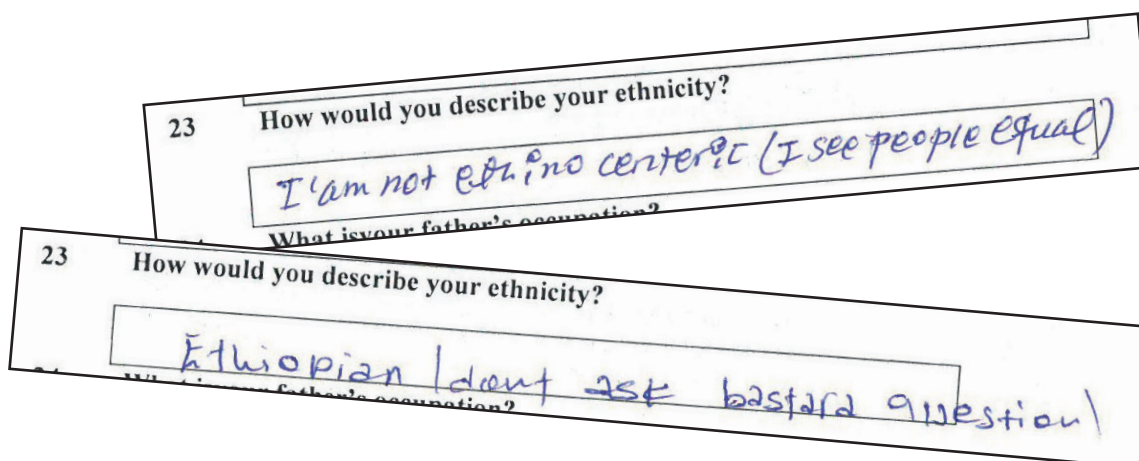 23 How would you describe your ethnicity?
I'am not ethino centeric (I see people equal)
What isyour father's occupation?
23 How would you describe your ethnicity?
Ethiopian |dont ask bastard question|
father's occupation?